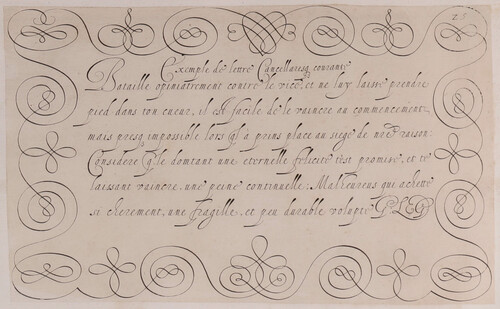 25
Exemple de lettre Cancellaresq courante
Bataille opiniatrement contre le vice, et ne luy laisse prendre
pied dans ton cueur, il est facile de le vaincre au commencement
mais presq impossible lors ql a prins place au siege de nore raison:
Considere q le domtant une eternelle felicité test promise, et te
laissant vaincre, une peine continuelle: Malheureus qui achette
si cherement, une fragille, et peu durable volupte